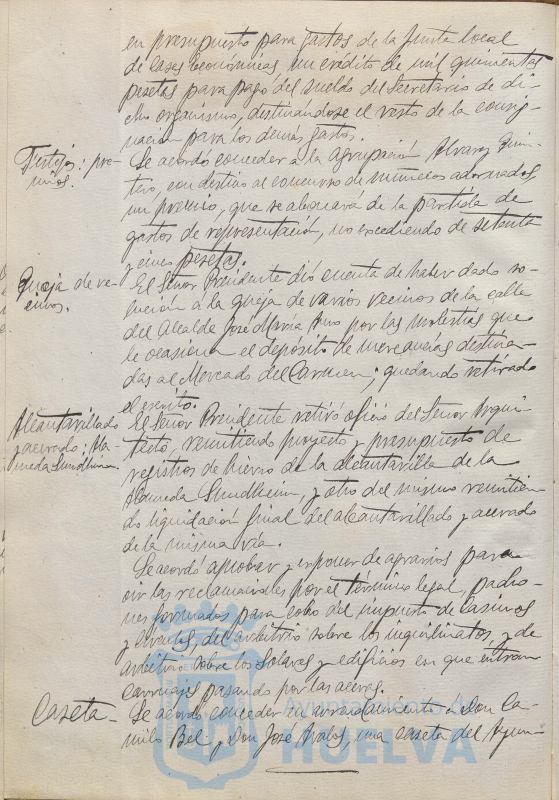 en presupuesto para gastos de la Junta local
de bases económicas, un crédito de mil quinientas
pesetas para pago del sueldo del Secretario de di-
cho organismo, destinandose el resto de la consig-
nación para los demás gastos.
Festejos: pre-
mios.
Se acordó conceder a la agrupación Alvarez Quin-
tero, con destino al concurso de muñecos adornados,
un premio, que se abonará de la partida de
gastos de representación, no excediendo de setenta
y cinco pesetas.
Queja de ve-
cinos.
El Señor Presidente dió cuenta de haber dado so-
lución a la queja de varios vecinos de la calle
del Alcalde José María Amo por las molestias que
le ocasiona el depósito de mercancías destina-
das al Mercado del Carmen; quedando retirado
el escrito.
Alcantarillado
y acerado: Ala-
meda Sundheim.
El Señor Presidente retiró oficio del Señor Arqui-
tecto, remitiendo proyecto y presupuesto de
registros de hierro de la alcantarilla de la
Alameda Sundheim, y otro del mismo remitien-
do liquidación final del alcantarillado y acerado
de la misma vía.
Se acordó aprobar y exponer de agravios para
oir las reclamaciones por el término legal, padro-
nes formados para cobro del impuesto de Casinos
y círculos, del arbitrio sobre los inquilinatos, y de
arbitrio sobre los Solares y edificios en que entran
carruajes pasando por las aceras.
Caseta-
Se acordó conceder en arrendamiento a Don Ca-
milo Bel y Don José Avalos, una caseta del Ayun-
Ayuntamiento de
HUELVA